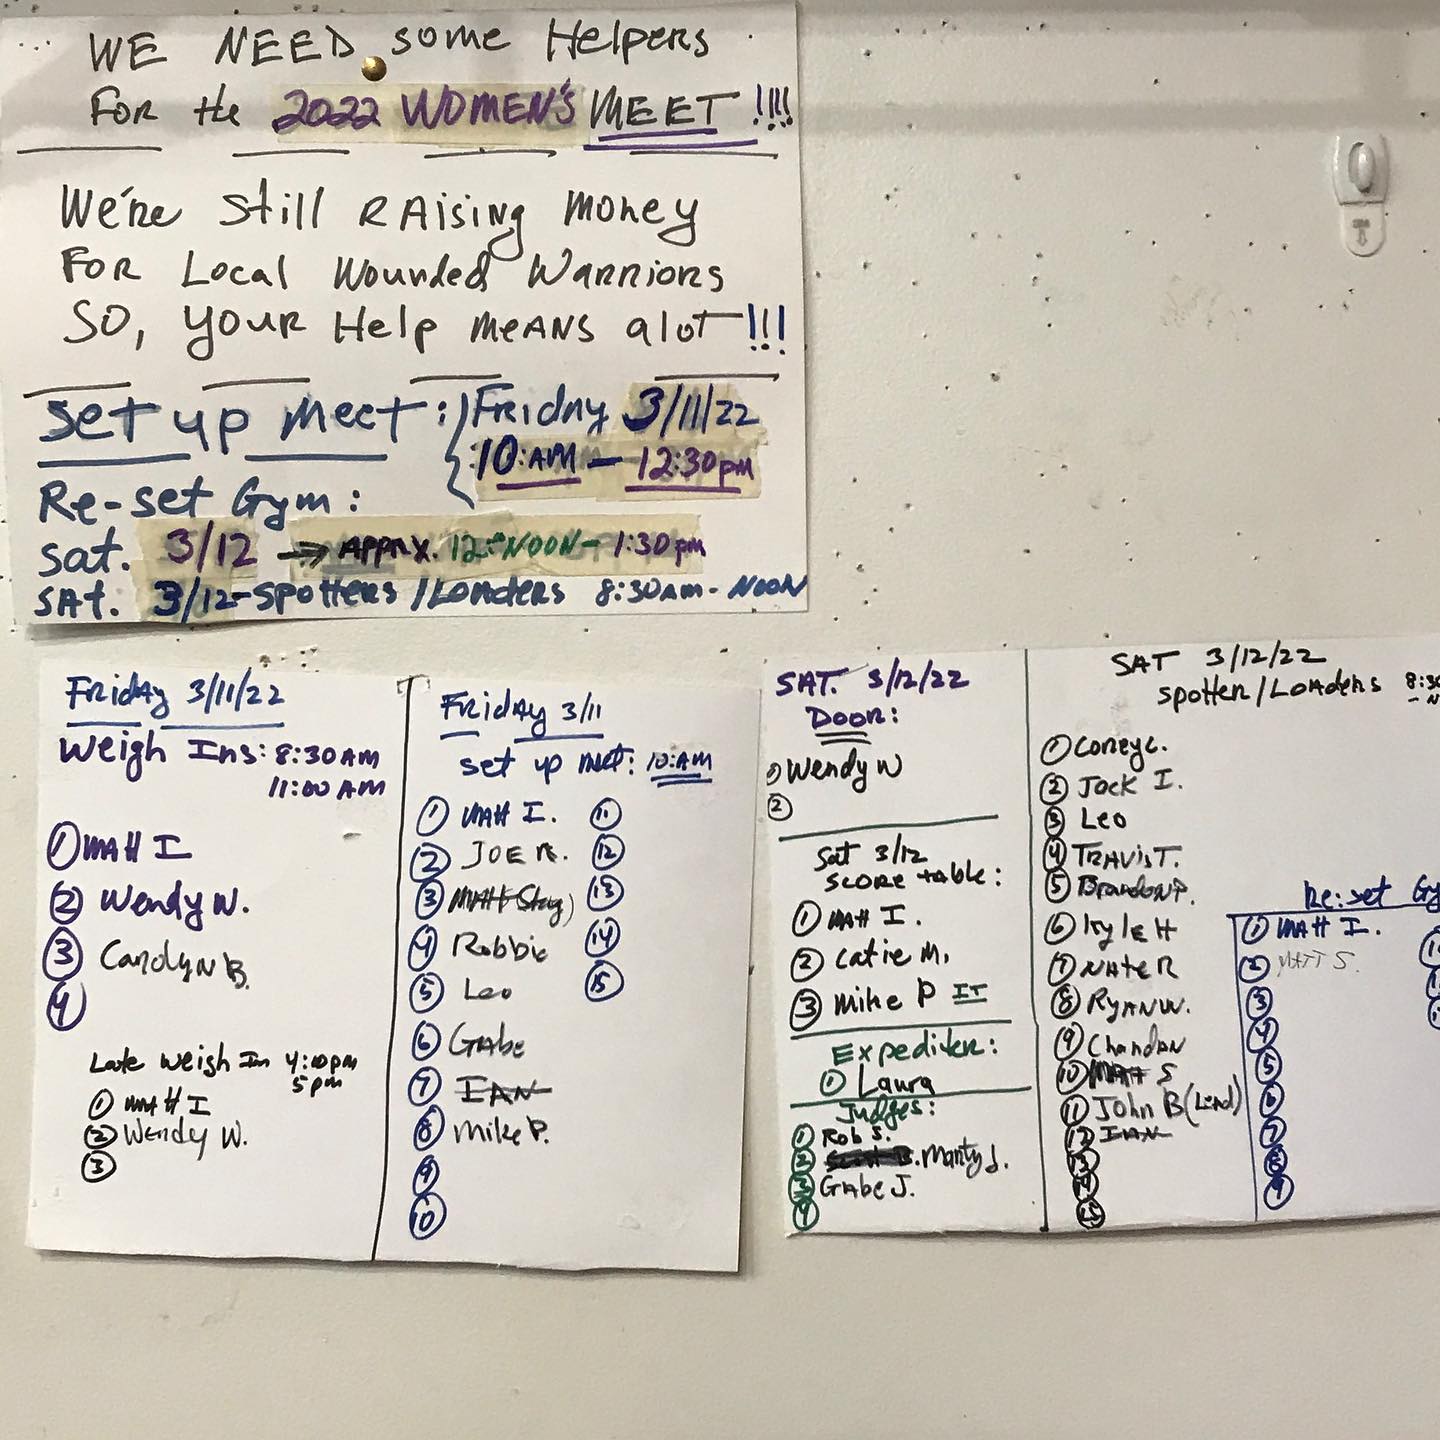 WE NEED some Helpers
FOR the 2022 WOMEN'S MEET !!!!
We're still RAising money
FOR Local Wounded Warriors
SO, your Help meANS alot!!!
set up meet: Friday 3/11/22
10:AM - 12:30pm
Re-set Gym:
sat. 3/12 → APPRX. 12:NOON- 1:30pm
SAt. 3/12-spotters /Loaders 8:30AM - NOON
Friday 3/11/22
Weigh Ins: 8:30AM
11:00 AM
① Matt I
② Wendy W.
③ Carolyn B.
④
Late weigh In 4:00pm
5pm
① Matt I
② Wendy W.
③
Friday 3/11
set up meet: 10:AM
① Matt I. ⑪
② JOE R. ⑫
③ ⑬
④ Robbie ⑭
⑤ Leo ⑮
⑥ Gabe
⑦ IAN
⑧ mike P.
⑨
⑩
SAT. 3/12/22
Door:
① Wendy W
②
Sat 3/12
score table:
① Matt I.
② Catie M.
③ mike P IT
Expediter:
① Laura
Judges:
① Rob S.
② Manty J.
③ Gabe J.
④
SAT 3/12/22
spotter/Loaders 8:30
① Corey C.
② Jock I.
③ Leo
④ Travis T.
⑤ Brandon P.
⑥ Kyle H
⑦ Nate R
⑧ Ryan W.
⑨ Chandan
⑩ Matt S
⑪ John B (Lind)
⑫ IAN
⑬
⑭
⑮
Re:set Gy
① Matt I.
② Matt S.
③
④
⑤
⑥
⑦
⑧
⑨